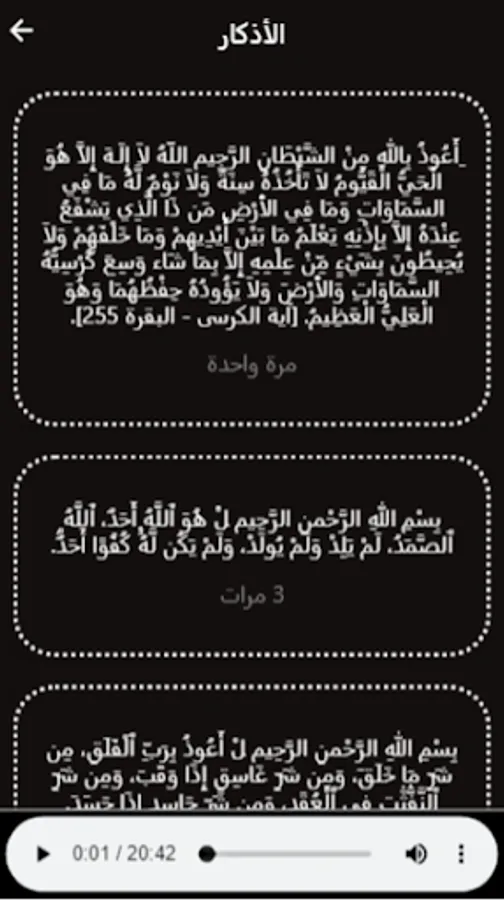 الأذكار
ـأَعُوذُ بِاللهِ مِنْ الشَّيْطَانِ الرَّجِيمِ اللّهُ لاَ إِلَـهَ إِلاَّ هُوَ
الْحَيُّ الْقَيُّومُ لاَ تَأْخُذُهُ سِنَةٌ وَلاَ نَوْمٌ لَّهُ مَا فِي
السَّمَاوَاتِ وَمَا فِي الأَرْضِ مَن ذَا الَّذِي يَشْفَعُ
عِنْدَهُ إِلاَّ بِإِذْنِهِ يَعْلَمُ مَا بَيْنَ أَيْدِيهِمْ وَمَا خَلْفَهُمْ وَلاَ
يُحِيطُونَ بِشَيْءٍ مِّنْ عِلْمِهِ إِلاَّ بِمَا شَاء وَسِعَ كُرْسِيُّهُ
السَّمَاوَاتِ وَالأَرْضَ وَلاَ يَؤُودُهُ حِفْظُهُمَا وَهُوَ
الْعَلِيُّ الْعَظِيمُ. [آية الكرسى - البقرة 255].
مرة واحدة
بِسْمِ اللهِ الرَّحْمنِ الرَّحِيمِ لْ هُوَ ٱللَّهُ أَحَدٌ، ٱللَّهُ
ٱلصَّمَدُ، لَمْ يَلِدْ وَلَمْ يُولَدْ، وَلَمْ يَكُن لَّهُۥ كُفُوًا أَحَدٌۢ.
3 مرات
بِسْمِ اللهِ الرَّحْمنِ الرَّحِيمِ لْ أَعُوذُ بِرَبِّ ٱلْفَلَقِ، مِن
شَرِّ مَا خَلَقَ، وَمِن شَرِّ غَاسِقٍ إِذَا وَقَبَ، وَمِن شَرِّ
ٱلنَّفَّٰثَٰتِ فِى ٱلْعُقَدِ، وَمِن شَرِّ حَاسِدٍ إِذَا حَسَدَ.
0:01 / 20:42